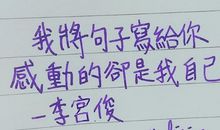 我將句子寫給你
感動的卻是我自己
－李宮俊